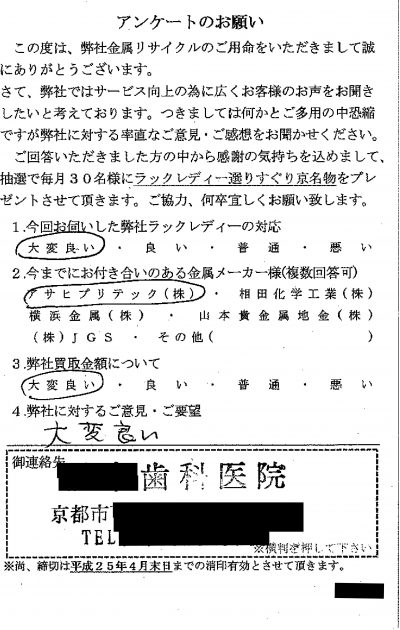 アンケートのお願い
この度は、弊社金属リサイクルのご用命をいただきまして誠
にありがとうございます。
さて、弊社ではサービス向上の為に広くお客様のお声をお聞き
したいと考えております。つきましては何かとご多用の中恐縮
ですが弊社に対する率直なご意見・ご感想をお聞かせください。
ご回答いただきました方の中から感謝の気持ちを込めまして、
抽選で毎月30名様にラックレディー選りすぐり京名物をプレ
ゼントさせて頂きます。ご協力、何卒宜しくお願い致します。
1.今回お伺いした弊社ラックレディーの対応
大変良い ・ 良い ・ 普通 ・ 悪い
2.今までにお付き合いのある金属メーカー様(複数回答可)
アサヒプリテック(株) ・ 相田化学工業(株)
横浜金属(株) ・ 山本貴金属地金(株)
(株)JGS ・ その他( )
3.弊社買取金額について
大変良い ・ 良い ・ 普通 ・ 悪い
4.弊社に対するご意見・ご要望
大変良い
御連絡先
歯科医院
京都市
TEL
※横判を押して下さい
※尚、締切は平成25年4月末日までの消印有効とさせて頂きます。